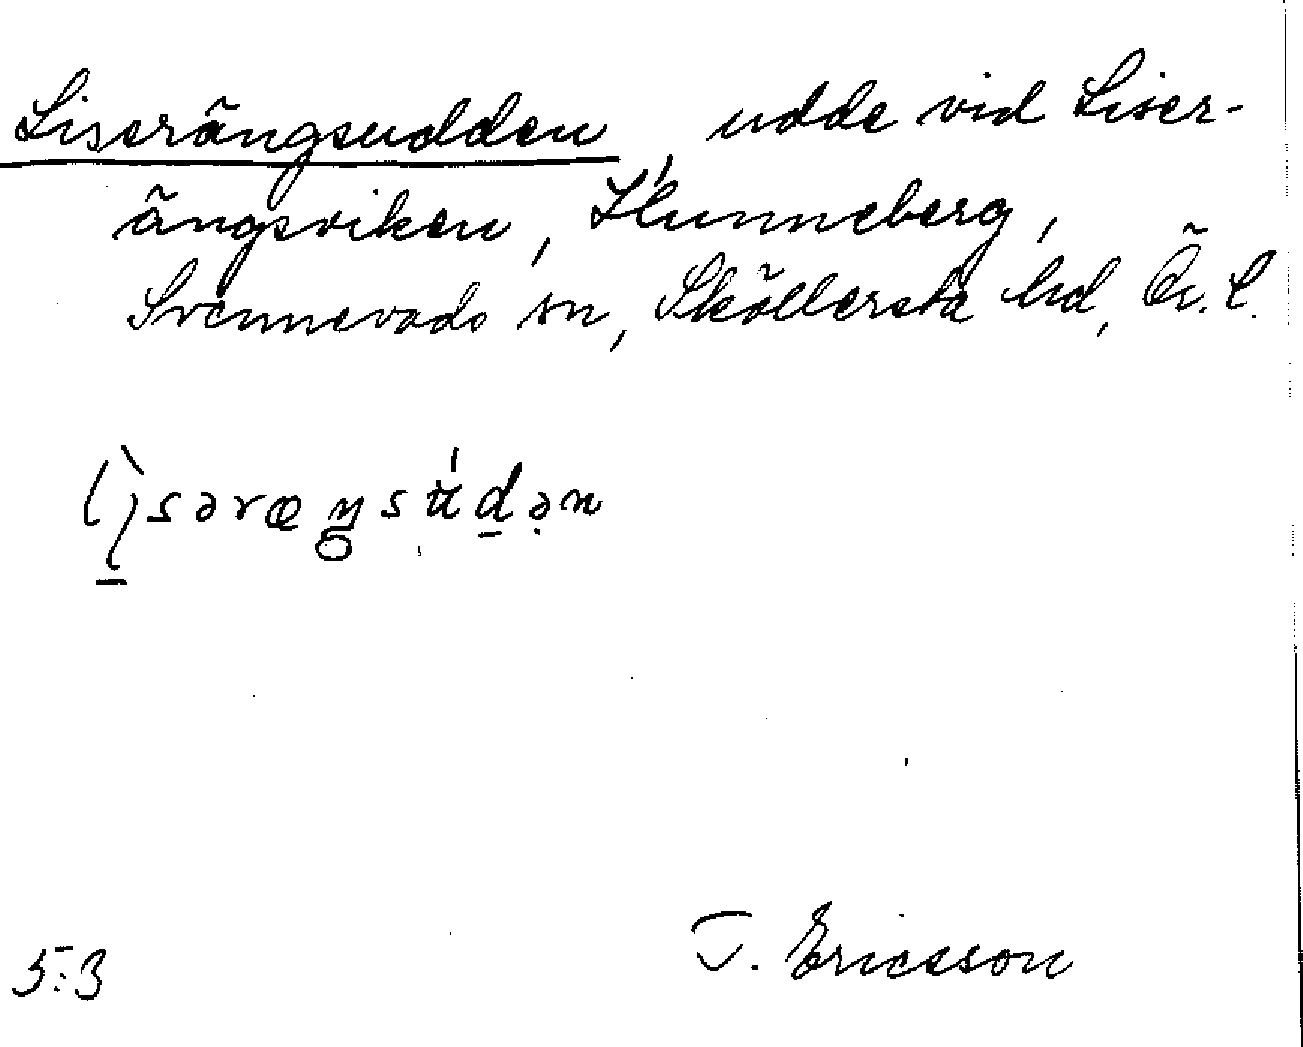 Liserängsudden, udde vid Liser-
ängsviken, Hunneberg,
Svennevads sn, Sköllersta hd, Ör. l.
lìsəræŋsúdən
5:3
T. Ericsson